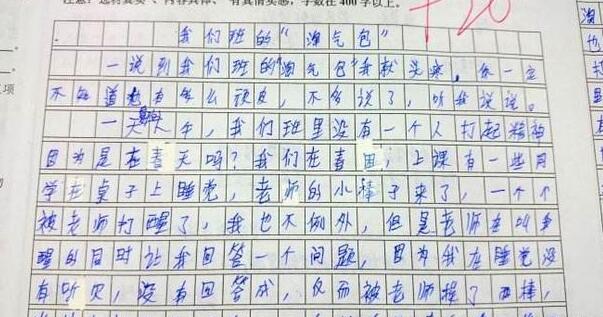 注意：选材真实、内容具体、有真情实感，字数在400字以上。
我们班的“淘气包”
一说到我们班的“淘气包”我就头疼，你一定
不知道他有多么顽皮，不多说了，听我说说。
一天上午，我们班里没有一个人打起精神
因为是在春天吗？我们在春困，上课有一些同
学在桌子上睡觉，老师的小棒子来了，一个个
被老师打醒了，我也不例外，但是老师在叫我
醒的同时让我回答一个问题，因为我在睡觉没
有听见，没有回答成，反而被老师揍了两棒，